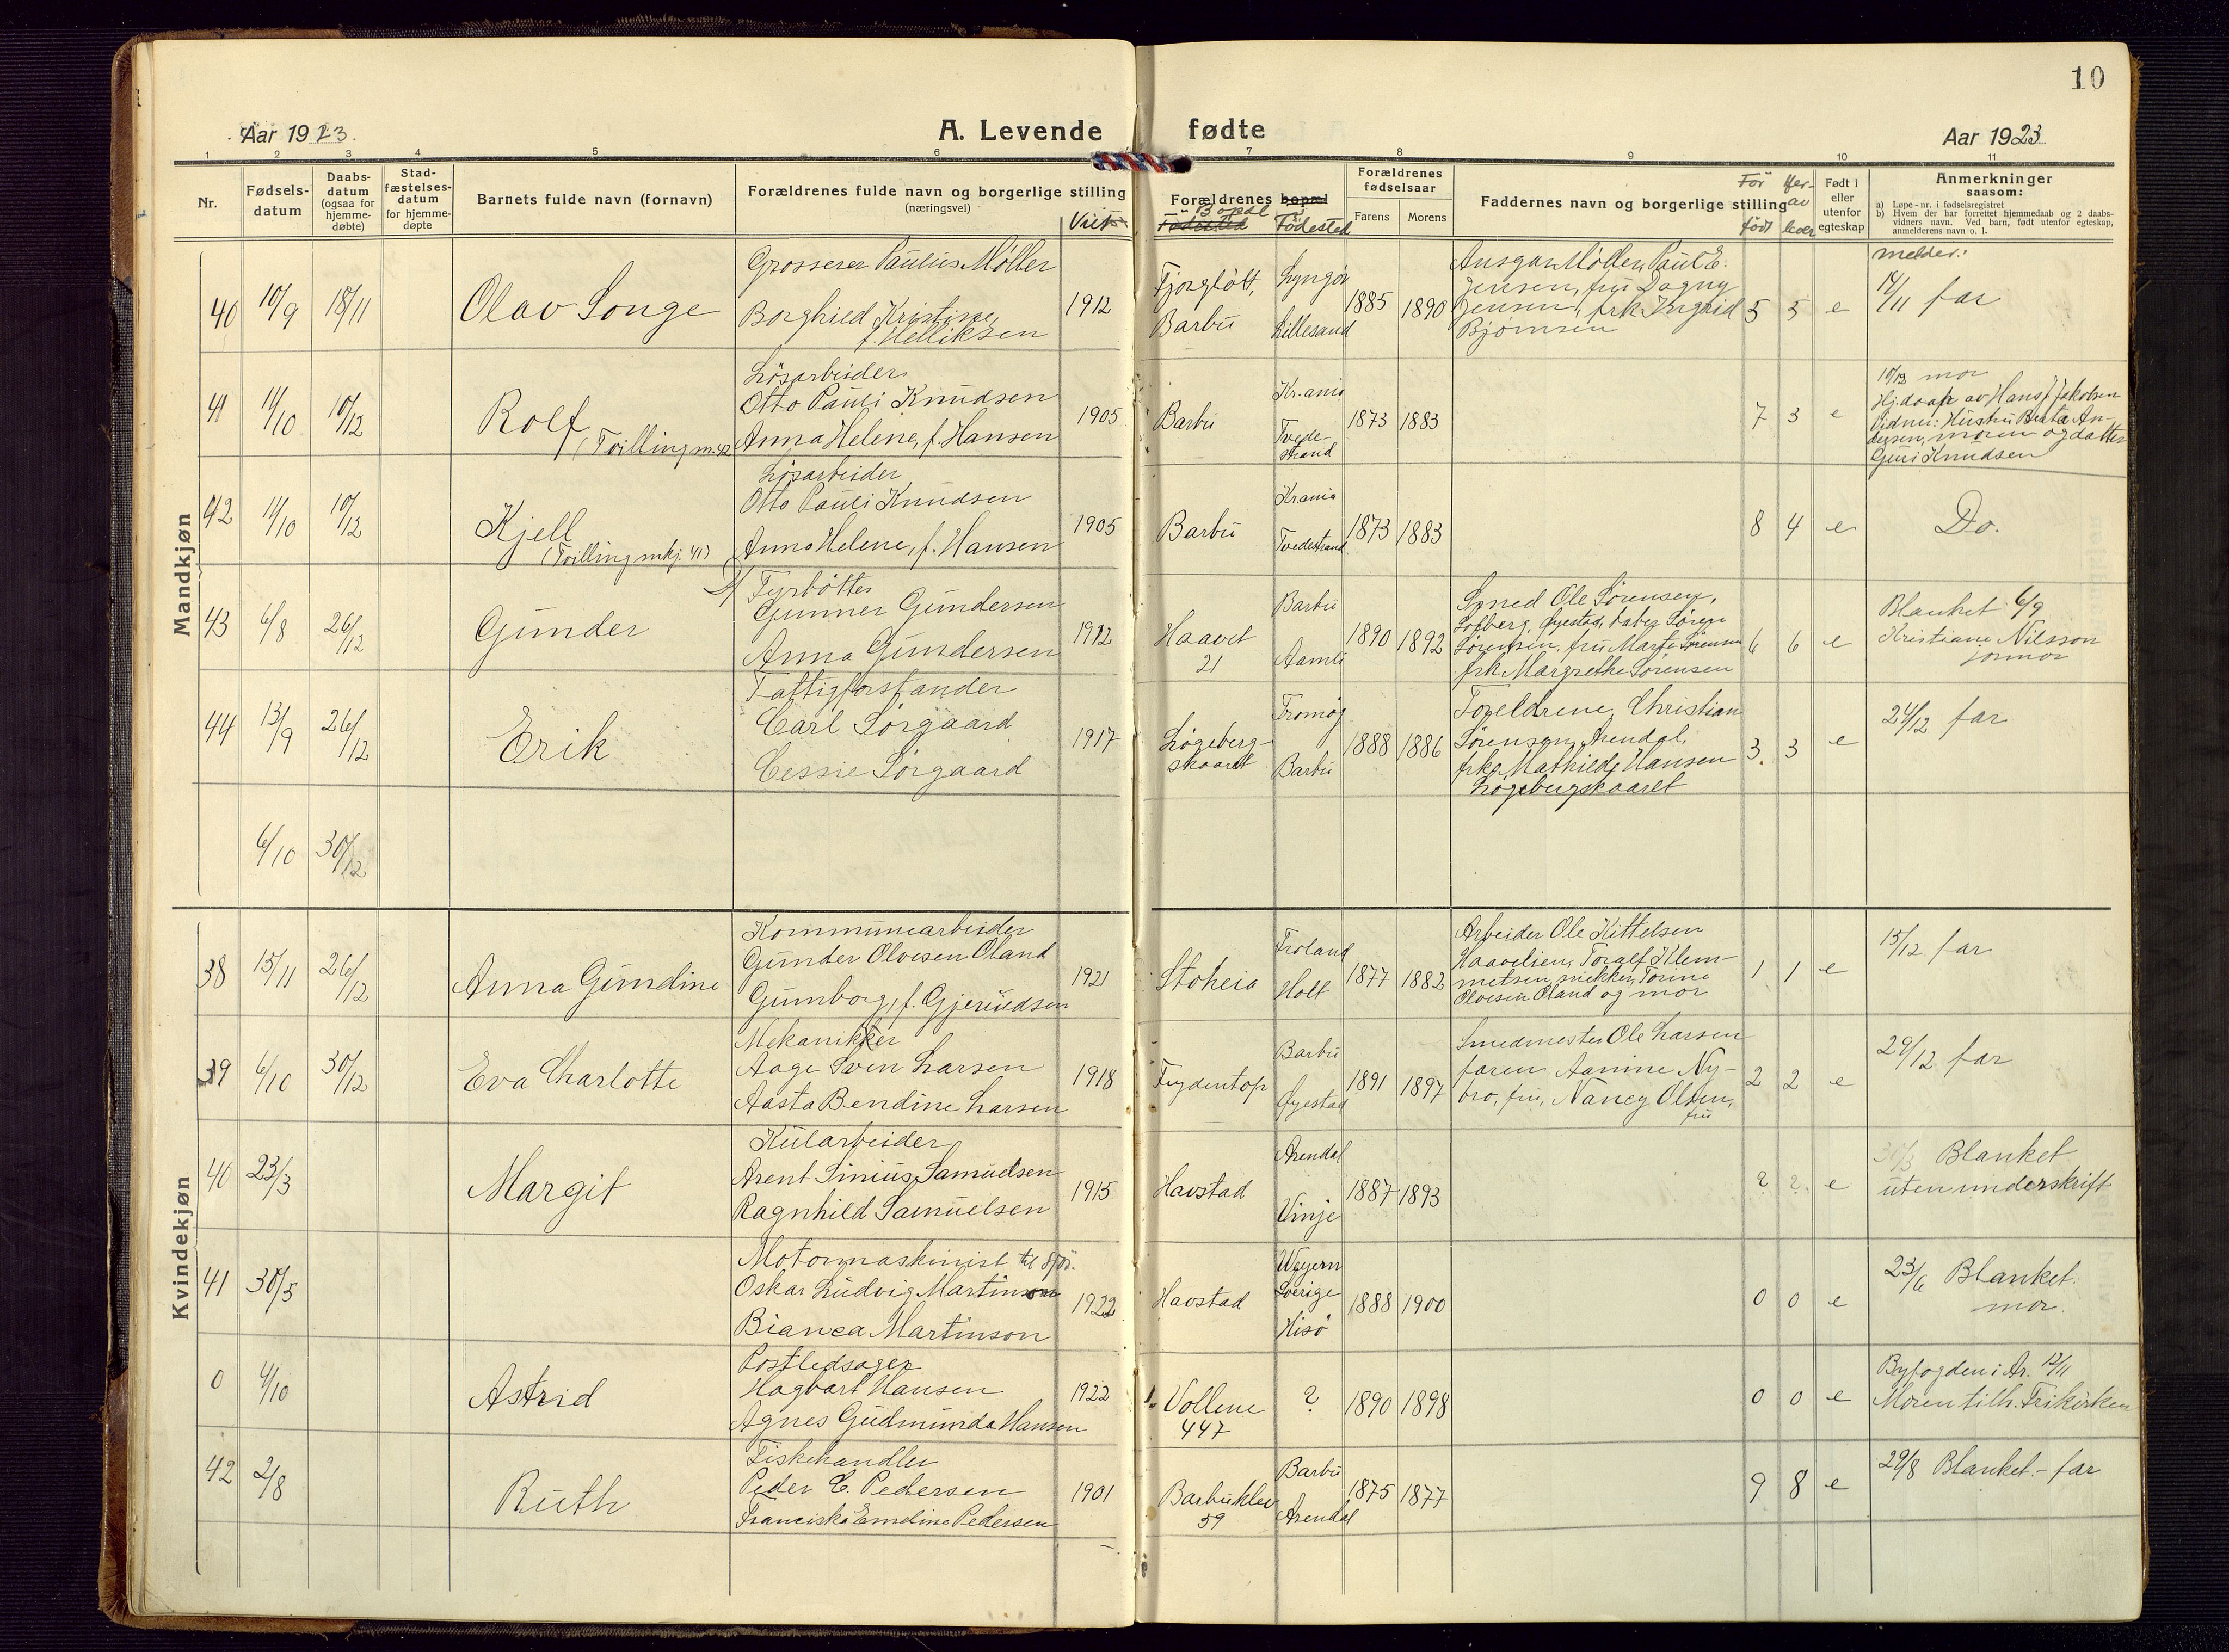 10
Aar 1923.
A. Levende fødte
Aar 1923
1 2 3 4 5 6 7 8 9 10 11
Nr.
Fødsels-
datum
Daabs-
datum
(ogsaa for
hjemme-
døbte)
Stad-
fæstelses-
datum
for hjemme-
døpte
Barnets fulde navn (fornavn)
Forældrenes fulde navn og borgerlige stilling
(næringsvei)
Viet
Forældrenes bopæl
Bopæl
Fødested
Fødested
Forældrenes
fødselsaar
Farens
Morens
Faddernes navn og borgerlige stilling
Før
født
Her-
av
lever
Født i
eller
utenfor
egteskap
Anmerkninger
saasom:
a) Løpe-nr. i fødselsregistret
b) Hvem der har forrettet hjemmedaab og 2 daabs-
vidners navn. Ved barn, født utenfor egteskap,
anmelderens navn o. l.
Mandkjøn
melder:
40 10/9 18/11 Olav Songe
Grosserer Paulus Møller
Borghild Kristine,
f. Helliksen
1912
Fjorgløtt,
Barbu
Lyngør
Lillesand
1885 1890
Ansgar Møller, Paul E.
Jensen, fru Dagny
Jensen, frk. Ingrid
Bjørnsen
5 5 e
14/11 far
41 11/10 10/12 Rolf
(Tvilling m. 42
Løsarbeider
Otto Pauli Knudsen
Anna Helene, f. Hansen
1905
Barbu
Kr.ania
Tvede-
strand
1873 1883
7 3 e
10/12 mor
Hj.daap av Hans J. Jakobsen
Vidner: Hustru Berta An-
dersen, moren og datter
Guri Knudsen
42 11/10 10/12 Kjell
(Tvilling m kj. 41)
Løsarbeider
Otto Pauli Knudsen
Anna Helene, f. Hansen
1905
Barbu
Krania
Tvedestrand
1873 1883
8 4 e
Do.
43 6/8 26/12 Gunder
Fyrbøter
Gunner Gundersen
Anna Gundersen
1912
Haavet
21
Barbu
Aamli
1890 1892
Smed Ole Sørensen,
Solberg, Øyestad, Søren
Sørensen, fru Marte Sørensen
frk. Margrethe Sørensen
6 6 e
Blanket 6/9
Kristiane Nilsson
jormor
44 13/9 26/12 Erik
Fattigforstander
Carl Sørgaard
Cessie Sørgaard
1917
Løgeberg-
skaaret
Tromøy
Barbu
1888 1886
Foreldrene, Christian
Sørensen, Arendal,
frk. Mathilde Hansen
Løgebergskaaret
3. 3 e
24/12 far
6/10 30/12
Kvindekjøn
38 15/11 26/12 Anna Gundine
Kommunearbeider
Gunder Olvesen Øland
Gunborg, f. Gjeruldsen
1921
Stoheia
Froland
Holt
1877 1882
Arbeider Ole Kittelsen
Haavelien, Torgelf Klem-
metsen, snekker, Torine
Olvesen Øland og mor
1 1 e
15/12 far
39 6/10 30/12 Eva Charlotte
Mekanikker
Aage Sven Larsen
Aasta Bendine Larsen
1918
Frydentop
Barbu
Øyestad
1891 1897
Smedmester Ole Larsen
faren Aanine Ny-
bro, fru, Nancy Olsen,
fru
2 2 e
29/12 far
40 23/3 Margit
Kularbeider
Arent Sinius Samuelsen
Ragnhild Samuelsen
1915
Havstad
Arendal
Vinje
1887 1893
2 2. e
30/3 Blanket
uten underskrift
41 30/5
Motormaskinist til sjøs.
Oskar Ludvig Martinson
Bianca Martinson
1922
Havstad
Sverige
Hisø
1888 1900
0 0 e
23/6 Blanket.
mor.
0 4/10 Astrid
Postledsager
Hagbart Hansen
Agnes Gudmunda Hansen
1922
Vollene
447
?
1890 1898
0 0 e
Byfogden i Ar. 12/11
Moren tilh. Frikirken
42 2/8 Ruth
Fiskehandler
Peder E. Pedersen
Franciska Emeline Pedersen
1901
Barbuklev
59
Barbu
Arendal
1875 1877
9 8 e
29/8 Blanket - far